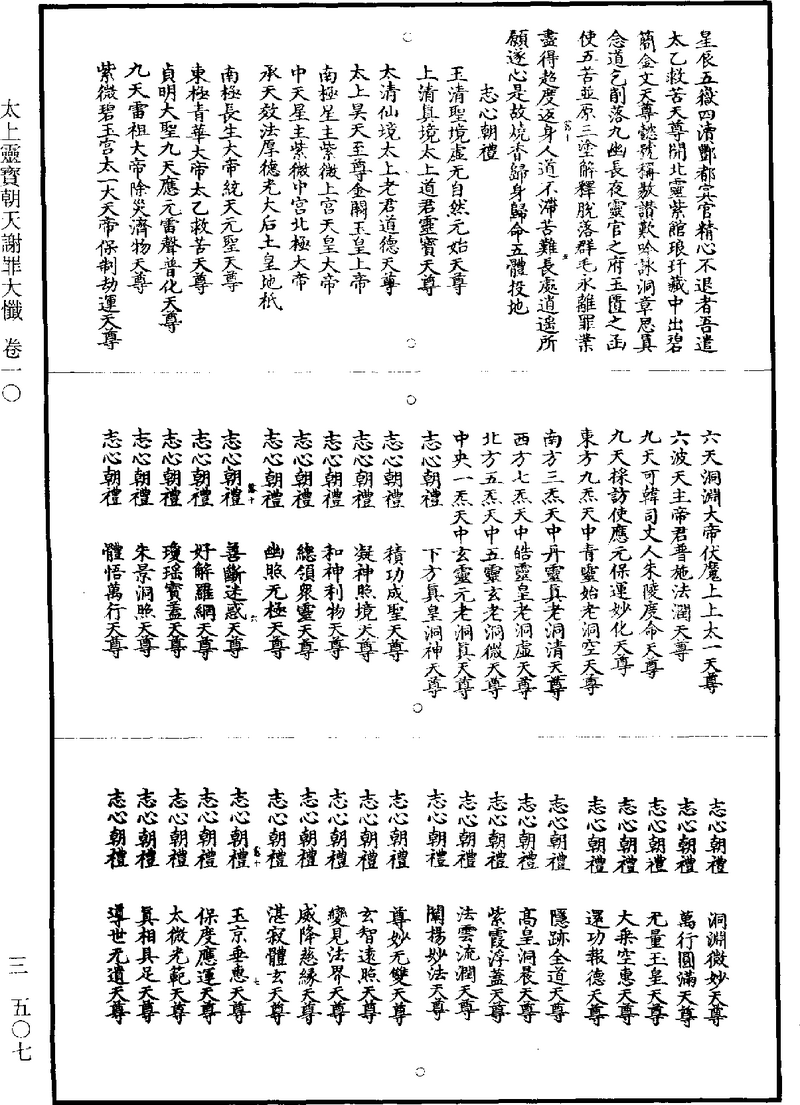 星辰五嶽四清酆都冥官精心不退者吾遣
太乙救苦天尊開北靈紫館琅玕藏中出碧
簡金文天尊懿號稱歎讚歎吟詠洞章思真
念道乞削落九幽長夜靈官之府玉匱之函
使五苦並原三塗解釋脫落群毛永離罪業
盡得超度返身人道不滯苦難長處逍遥所
願遂心是故燒香歸身歸命五體投地
志心朝禮
玉清聖境虛无自然元始天尊
上清真境太上道君靈寶天尊
太清仙境太上老君道德天尊
太上昊天至尊金闕玉皇上帝
南極星主紫微上宮天皇大帝
中天星主紫微中宮北極大帝
承天效法厚德光大后土皇地祇
南極長生大帝統天元聖天尊
東極青華大帝太乙救苦天尊
貞明大聖九天應元雷聲普化天尊
九天雷祖大帝除災濟物天尊
紫微碧玉宮太一大天帝保制劫運天尊
六天洞淵大帝伏魔上上太一天尊
六波天主帝君普施法潤天尊
九天可韓司丈人朱陵度命天尊
九天採訪使應元保運妙化天尊
東方九炁天中青靈始老洞空天尊
南方三炁天中丹靈真老洞清天尊
西方七炁天中皓靈皇老洞虛天尊
北方五炁天中五靈玄老洞微天尊
中央一炁天中玄靈元老洞真天尊
志心朝禮 下方真皇洞神天尊
志心朝禮 積功成聖天尊
志心朝禮 凝神照境天尊
志心朝禮 和神利物天尊
志心朝禮 總領衆靈天尊
志心朝禮 幽照无極天尊
志心朝禮 善斷迷惑天尊
志心朝禮 好解羅網天尊
志心朝禮 瓊瑶寶蓋天尊
志心朝禮 朱景洞照天尊
志心朝禮 體悟萬行天尊
志心朝禮 洞淵微妙天尊
志心朝禮 萬行圓滿天尊
志心朝禮 无量玉皇天尊
志心朝禮 大乘空惠天尊
志心朝禮 運功報德天尊
志心朝禮 隱跡全道天尊
志心朝禮 高皇洞晨天尊
志心朝禮 紫霞浮蓋天尊
志心朝禮 法雲流潤天尊
志心朝禮 闡揚妙法天尊
志心朝禮 尊妙无雙天尊
志心朝禮 玄智遠照天尊
志心朝禮 變見法界天尊
志心朝禮 威降慈緣天尊
志心朝禮 湛寂體玄天尊
志心朝禮 玉京垂惠天尊
志心朝禮 保度應運天尊
志心朝禮 太微光範天尊
志心朝禮 真相具足天尊
志心朝禮 導世无遺天尊
太上靈寶朝天謝罪大懺 卷一〇
三 五〇七